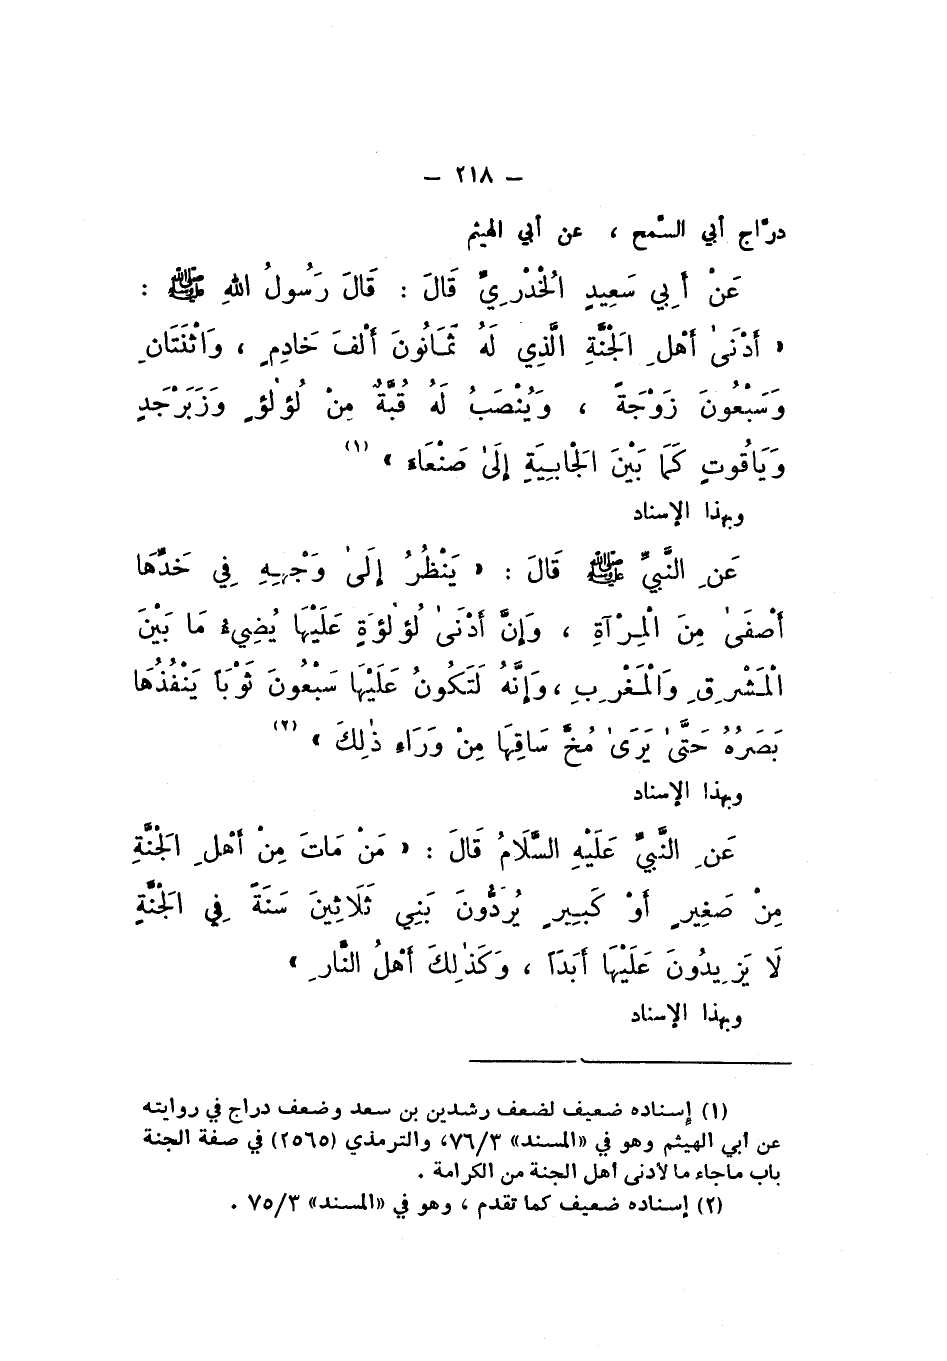 — ٢١٨ —
درّاج أبي السّمح ، عن أبي الهيثم
عَنْ أَبِي سَعِيدٍ الْخُدْرِيِّ قَالَ : قَالَ رَسُولُ اللهِ ﷺ :
« أَدْنَىٰ أَهْلِ الْجَنَّةِ الَّذِي لَهُ ثَمَانُونَ أَلْفَ خَادِمٍ ، وَاثْنَتَانِ
وَسَبْعُونَ زَوْجَةً ، وَيُنْصَبُ لَهُ قُبَّةٌ مِنْ لُؤلُؤٍ وَزَبَرْجَدٍ
وَيَاقُوتٍ كَمَا بَيْنَ الْجَابِيَةِ إِلَىٰ صَنْعَاءَ »(١)
وبهذا الإسناد
عَنِ النَّبِيِّ ﷺ قَالَ : « يَنْظُرُ إِلَىٰ وَجْهِهِ فِي خَدِّهَا
أَصْفَىٰ مِنَ الْمِرْآةِ ، وَإِنَّ أَدْنَىٰ لُؤْلُؤَةٍ عَلَيْهَا يُضِيءُ مَا بَيْنَ
الْمَشْرِقِ وَالْمَغْرِبِ ، وَإِنَّهُ لَتَكُونُ عَلَيْهَا سَبْعُونَ ثَوْبَاً يَنْفُذُهَا
بَصَرُهُ حَتَّىٰ يَرَىٰ مُخَّ سَاقِهَا مِنْ وَرَاءِ ذٰلِكَ »(٢)
وبهذا الإسناد
عَنِ النَّبِيِّ عَلَيْهِ السَّلَامُ قَالَ : « مَنْ مَاتَ مِنْ أَهْلِ الْجَنَّةِ
مِنْ صَغِيرٍ أَوْ كَبِيرٍ يُرَدُّونَ بَنِي ثَلَاثِينَ سَنَةً فِي الْجَنَّةِ
لَا يَزِيدُونَ عَلَيْهَا أَبَدَاً ، وَكَذٰلِكَ أَهْلُ النَّارِ »
وبهذا الإسناد
(١) إسناده ضعيف لضعف رشدين بن سعد وضعف دراج في روايته
عن أبي الهيثم وهو في «المسند» ٧٦/٣، والترمذي (٢٥٦٥) في صفة الجنة
باب ماجاء ما لأدنى أهل الجنة من الكرامة .
(٢) إسناده ضعيف كما تقدم ، وهو في «المسند» ٧٥/٣ .